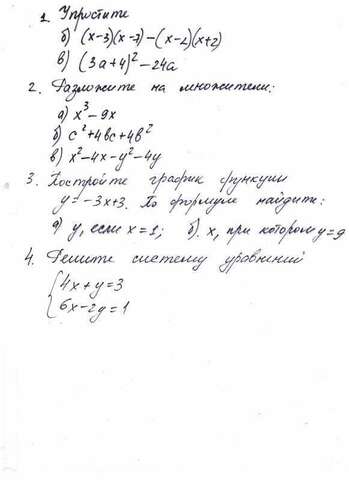 1. Упростите
б) (x-3)(x-7)-(x-2)(x+2)
в) (3a+4)²-24a
2. Разложите на множители:
а) x³-9x
б) c²+4bc+4b²
в) x²-4x-y²-4y
3. Постройте график функции
y=-3x+3. По формуле найдите:
а) y, если x=1; б). x, при котором y=9
4. Решите систему уравнений
{4x+y=3
6x-2y=1